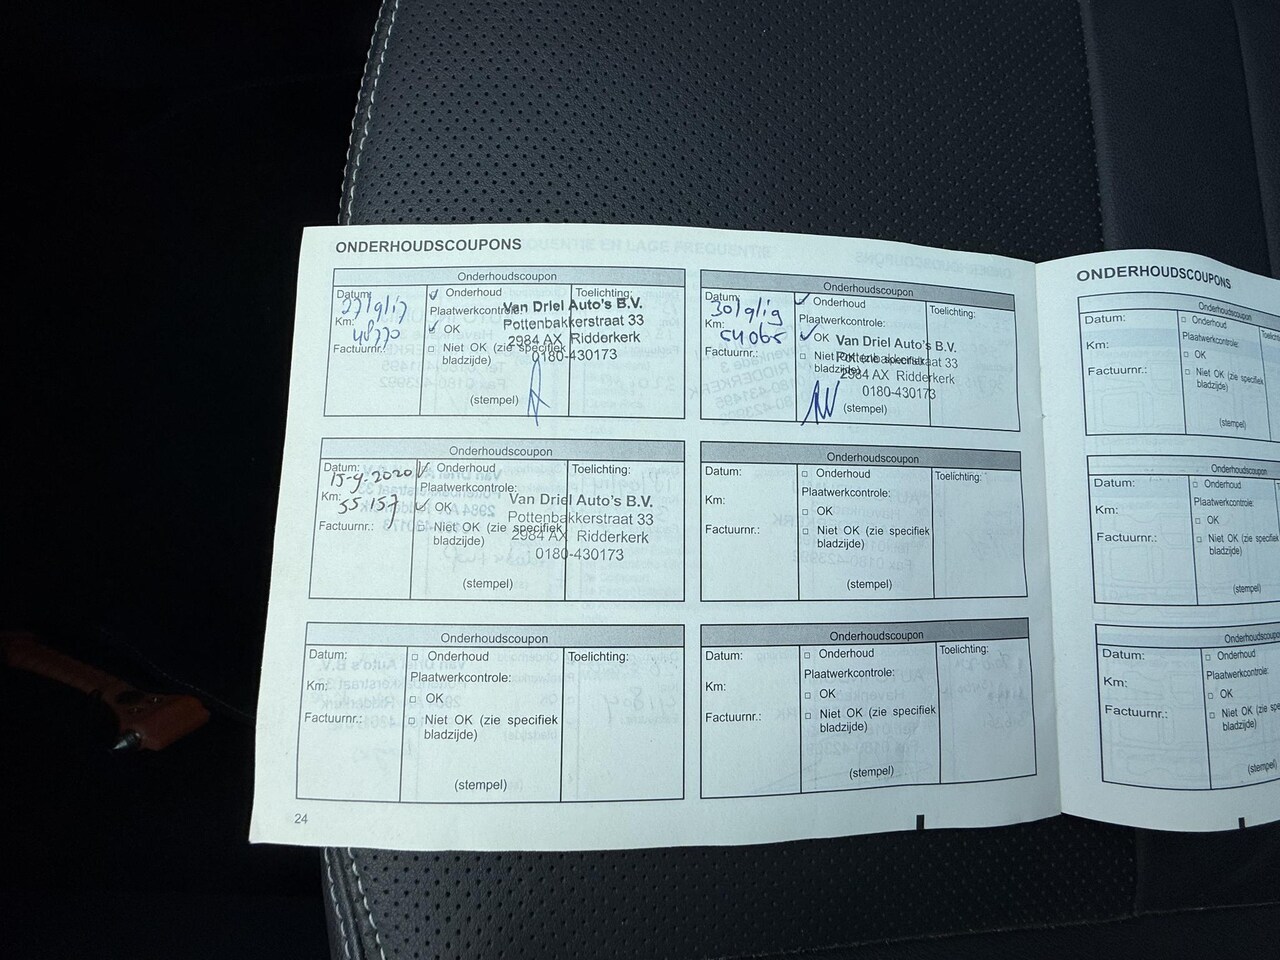 ONDERHOUDSCOUPONS
Onderhoudscoupon
Datum: 27/9/17
Km: 48770
Factuurnr.:
Onderhoud
Plaatwerkcontrole:
OK
Niet OK (zie specifiek
bladzijde)
(stempel)
Toelichting:
Van Driel Auto's B.V.
Pottenbakkerstraat 33
2984 AX Ridderkerk
0180-430173
Onderhoudscoupon
Datum: 30/9/19
Km: 54065
Factuurnr.:
Onderhoud
Plaatwerkcontrole:
OK
Niet OK (zie specifiek
bladzijde)
(stempel)
Toelichting:
Van Driel Auto's B.V.
Pottenbakkerstraat 33
2984 AX Ridderkerk
0180-430173
Onderhoudscoupon
Datum: 15-4-2020
Km: 55.157
Factuurnr.:
Onderhoud
Plaatwerkcontrole:
OK
Niet OK (zie specifiek
bladzijde)
(stempel)
Toelichting:
Van Driel Auto's B.V.
Pottenbakkerstraat 33
2984 AX Ridderkerk
0180-430173
Onderhoudscoupon
Datum:
Km:
Factuurnr.:
Onderhoud
Plaatwerkcontrole:
OK
Niet OK (zie specifiek
bladzijde)
(stempel)
Toelichting:
Onderhoudscoupon
Datum:
Km:
Factuurnr.:
Onderhoud
Plaatwerkcontrole:
OK
Niet OK (zie specifiek
bladzijde)
(stempel)
Toelichting:
Onderhoudscoupon
Datum:
Km:
Factuurnr.:
Onderhoud
Plaatwerkcontrole:
OK
Niet OK (zie specifiek
bladzijde)
(stempel)
Toelichting:
24
ONDERHOUDSCOUPONS
Onderhoudscoupon
Datum:
Km:
Factuurnr.:
Onderhoud
Plaatwerkcontrole:
OK
Niet OK (zie specifiek
bladzijde)
(stempel)
Onderhoudscoupon
Datum:
Km:
Factuurnr.:
Onderhoud
Plaatwerkcontrole:
OK
Niet OK (zie specifiek
bladzijde)
(stempel)
Datum:
Km:
Factuurnr.:
Onderhoud
Plaatwerkcontrole:
OK
Niet OK (zie specifiek
bladzijde)